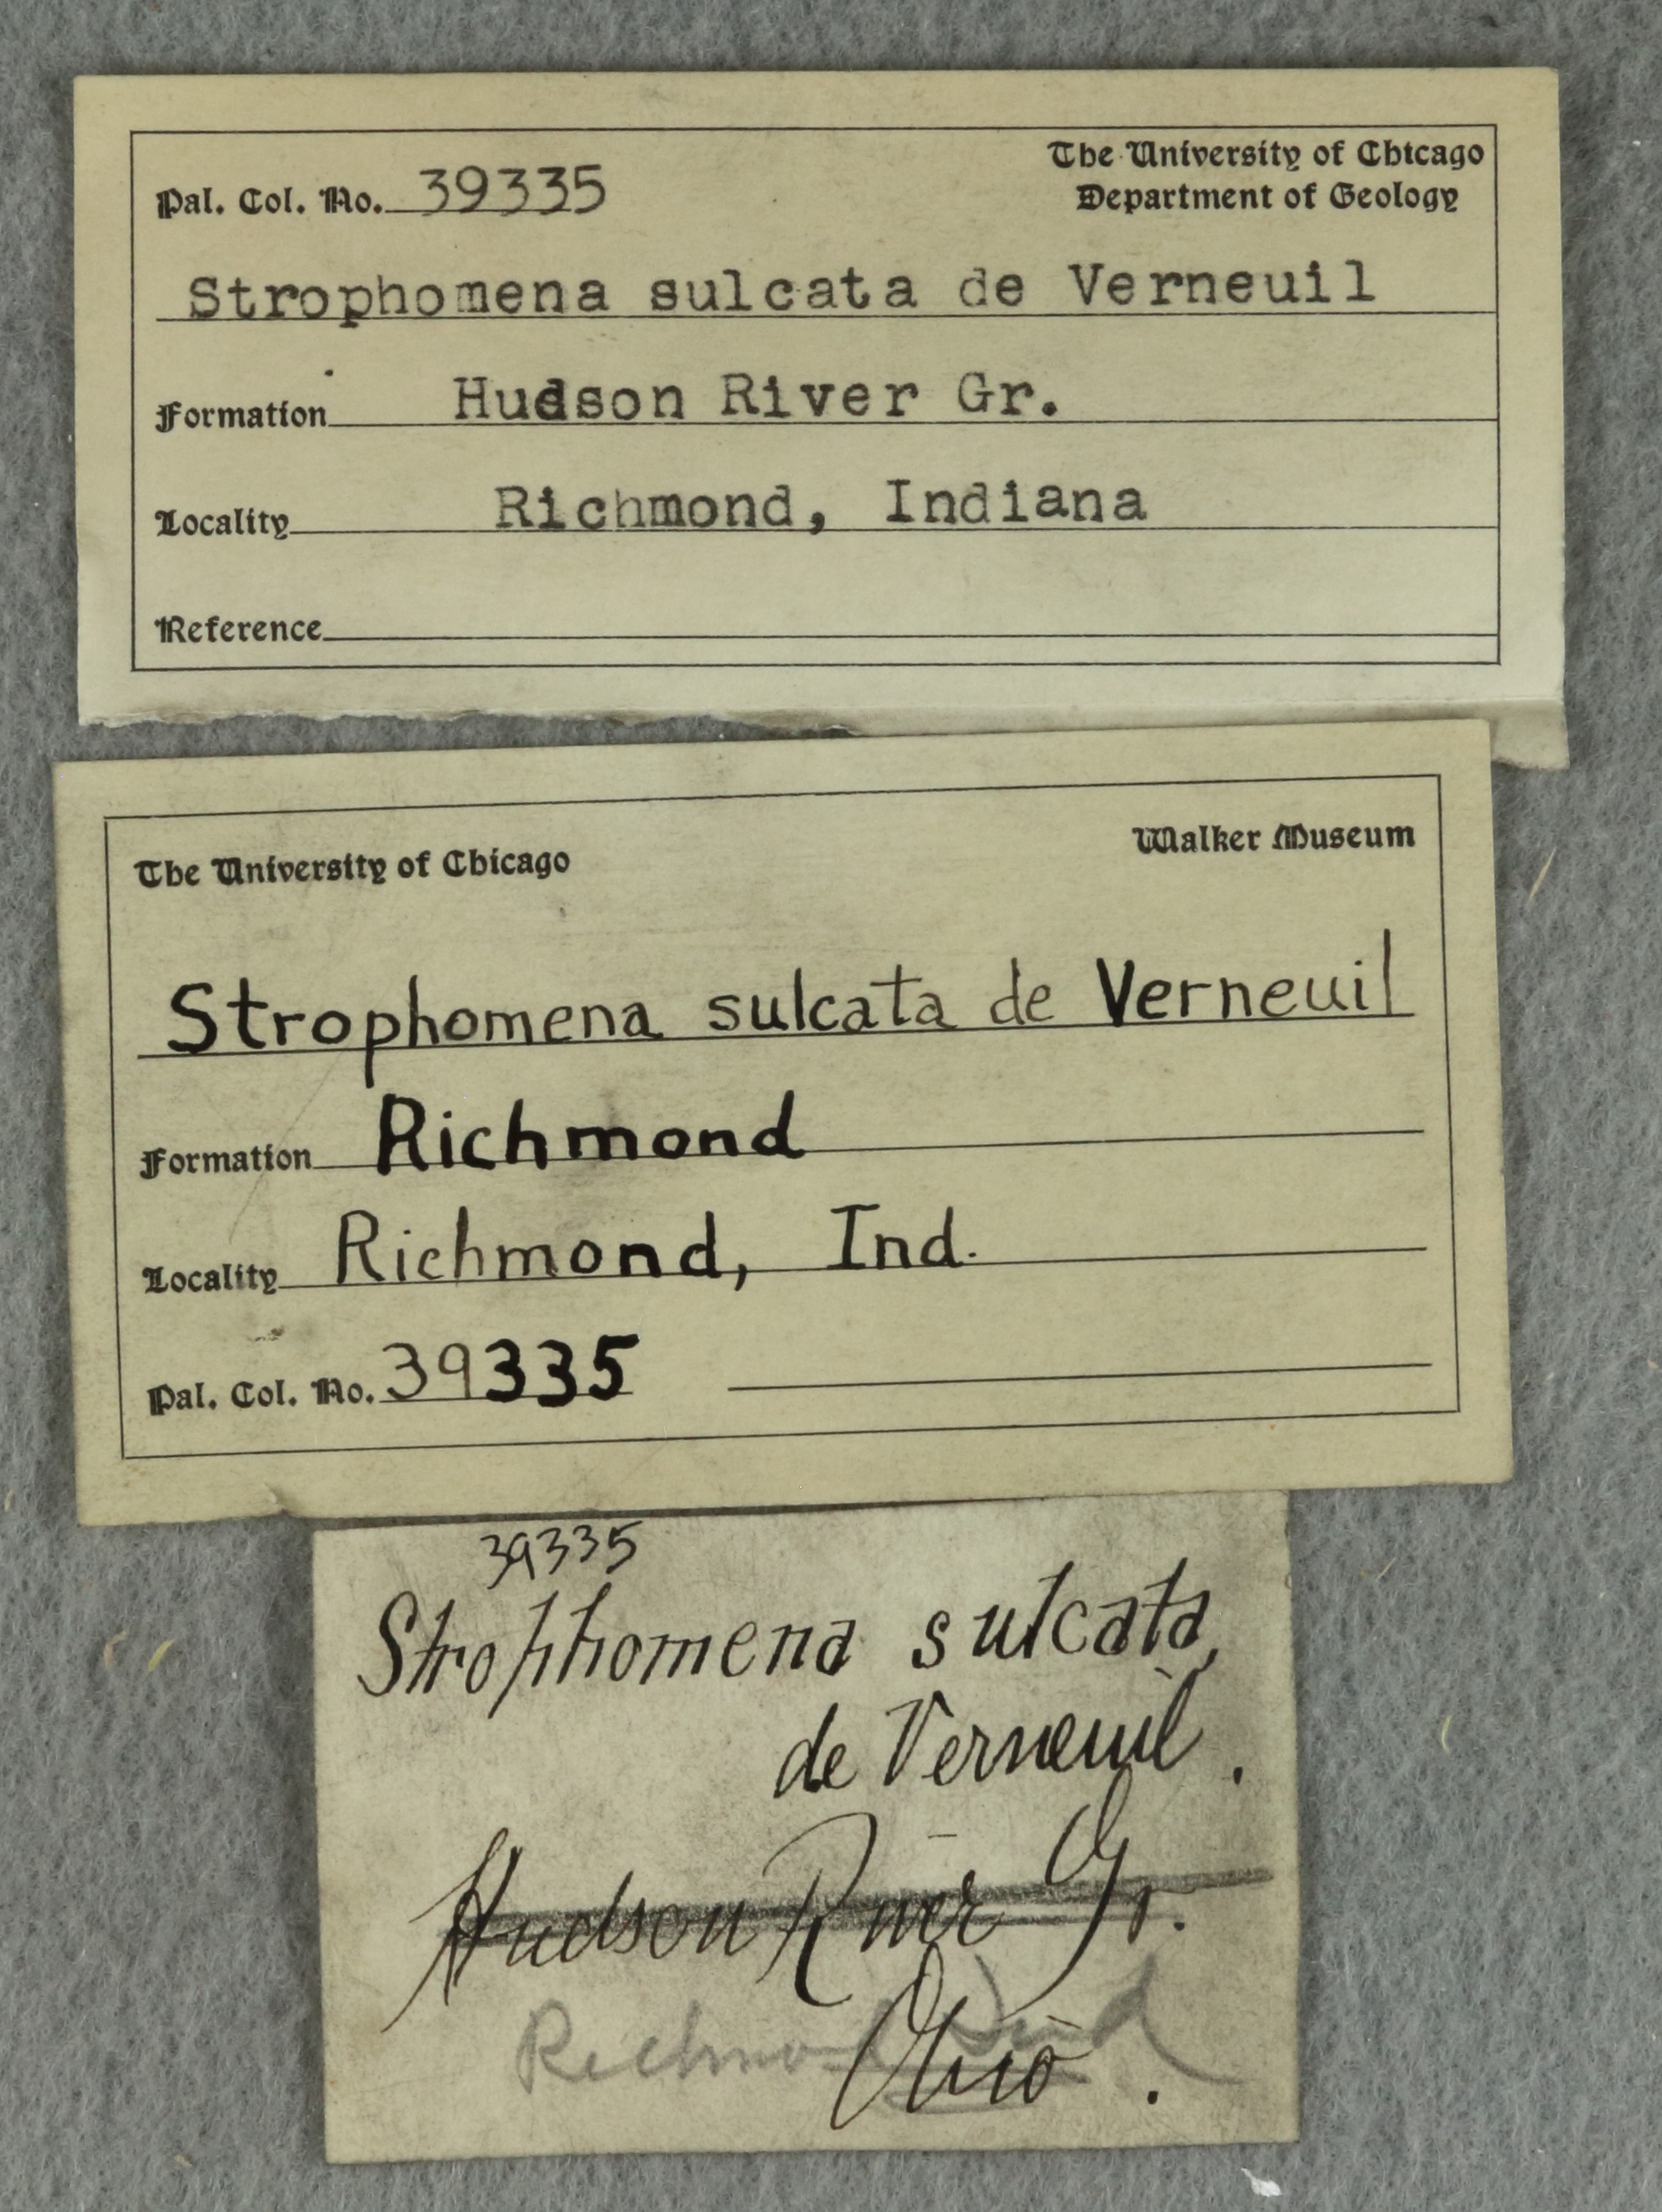 The University of Chicago
Department of Geology
Pal. Col. No. 39335
Strophomena sulcata de Verneuil
Formation Hudson River Gr.
Locality Richmond, Indiana
Reference
The University of Chicago Walker Museum
Strophomena sulcata de Verneuil
Formation Richmond
Locality Richmond, Ind.
Pal. Col. No. 39335
39335
Strophomena sulcata,
de Verneuil.
Hudson River Gr.
Richmond Ind
Ohio.